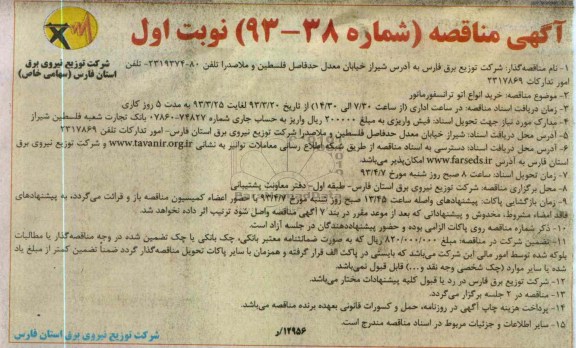 آگهی مناقصه (شماره ۳۸-۹۳) نوبت اول
شرکت توزیع نیروی برق
استان فارس (سهامی خاص)
۱- نام مناقصه‌گذار: شرکت توزیع برق فارس به آدرس شیراز خیابان معدل حدفاصل فلسطین و ملاصدرا تلفن ۸۰-۲۳۱۹۳۷۴ تلفن
امور تدارکات ۲۳۱۷۸۶۹
۲- موضوع مناقصه: خرید انواع اتو ترانسفورماتور
۳- زمان دریافت اسناد مناقصه: در ساعت اداری (از ساعت ۷/۳۰ الی ۱۴/۳۰) از تاریخ ۹۳/۳/۲۰ لغایت ۹۳/۳/۲۵ به مدت ۵ روز کاری
۴- مدارک مورد نیاز جهت تحویل اسناد: فیش واریزی به مبلغ ۲۰۰۰۰۰ ریال واریز به حساب جاری شماره ۷۴۸۲۷-۰۷۸۶۰ بانک تجارت شعبه فلسطین شیراز
۵- آدرس محل دریافت اسناد: شیراز خیابان معدل حدفاصل فلسطین و ملاصدرا شرکت توزیع نیروی برق استان فارس- امور تدارکات تلفن ۲۳۱۷۸۶۹
۶- آدرس دریافت اسناد: دسترسی به اسناد مناقصه از طریق شبکه اطلاع رسانی معاملات توانیر به نشانی www.tavanir.org.ir و شرکت توزیع نیروی برق
استان فارس به آدرس www.farseds.ir امکان‌پذیر می‌باشد.
۷- زمان تحویل اسناد: ساعت ۸ صبح روز شنبه مورخ ۹۳/۴/۷
۸- محل برگزاری مناقصه: شرکت توزیع نیروی برق استان فارس- طبقه اول- دفتر معاونت پشتیبانی
۹- زمان بازگشایی پاکات: پیشنهادهای واصله ساعت ۱۳/۴۵ صبح روز شنبه مورخ ۹۳/۴/۷ با حضور اعضاء کمیسیون مناقصه باز و قرائت می‌گردد، به پیشنهادهای
فاقد امضاء مشروط، مخدوش و پیشنهاداتی که بعد از موعد مقرر در بند ۷ آگهی مناقصه واصل شود ترتیب اثر داده نخواهد شد.
۱۰- ذکر شماره مناقصه روی پاکات الزامی بوده و حضور پیشنهاددهندگان در جلسه آزاد است
۱۱- تضمین شرکت در مناقصه: مبلغ ۸۲۰/۰۰۰/۰۰۰ ریال که به صورت ضمانتنامه معتبر بانکی، چک بانکی یا چک تضمین شده در وجه مناقصه‌گذار یا مطالبات
بلوکه شده توسط امور مالی این شرکت می‌باشد که بایستی در پاکت الف قرار گرفته و همزمان با سایر پاکات تحویل مناقصه‌گذار گردد ضمناً تضمین کمتر از مبلغ یاد
شده یا سایر موارد (چک شخصی وجه نقد و...) قابل قبول نمی‌باشد.
۱۲- شرکت توزیع برق فارس در رد یا قبول کلیه پیشنهادات مختار می‌باشد.
۱۳- مناقصه در ۲ جلسه برگزار می‌گردد.
۱۴- پرداخت هزینه چاپ آگهی در روزنامه، حمل و کسورات قانونی بعهده برنده مناقصه می‌باشد.
۱۵- سایر اطلاعات و جزئیات مربوط در اسناد مناقصه مندرج است.
۱۲۹۵۶/ر
شرکت توزیع نیروی برق استان فارس